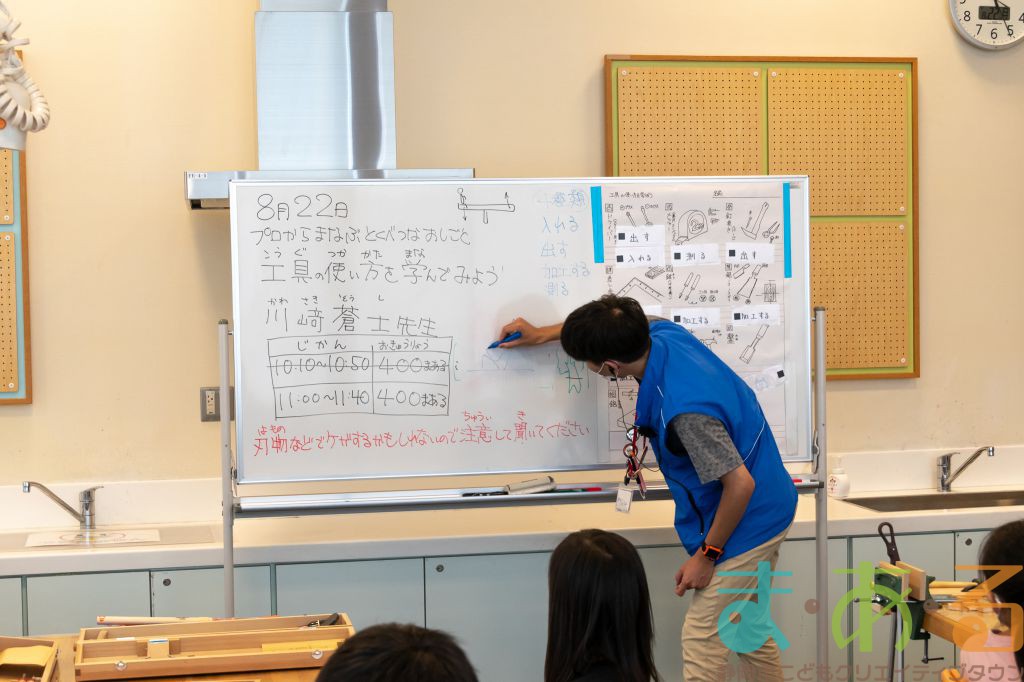 8月22日
プロからまなぶとくべつなおしごと
こう ぐ つか かた まな
工具の使い方を学んでみよう
かわ さき そう し
川﨑蒼士先生
じかん おきゅうりょう
10:10～10:50 400まある
11:00～11:40 400まある
はもの ちゅうい き
刃物などでケガするかもしれないので注意して聞いてください
入れる
出す
加工する
測る
工具の使い方を学ぼう 名前
出す
入れる 測る 出す
加工する 加工する
ま・ある
こどもクリエイティブタウン